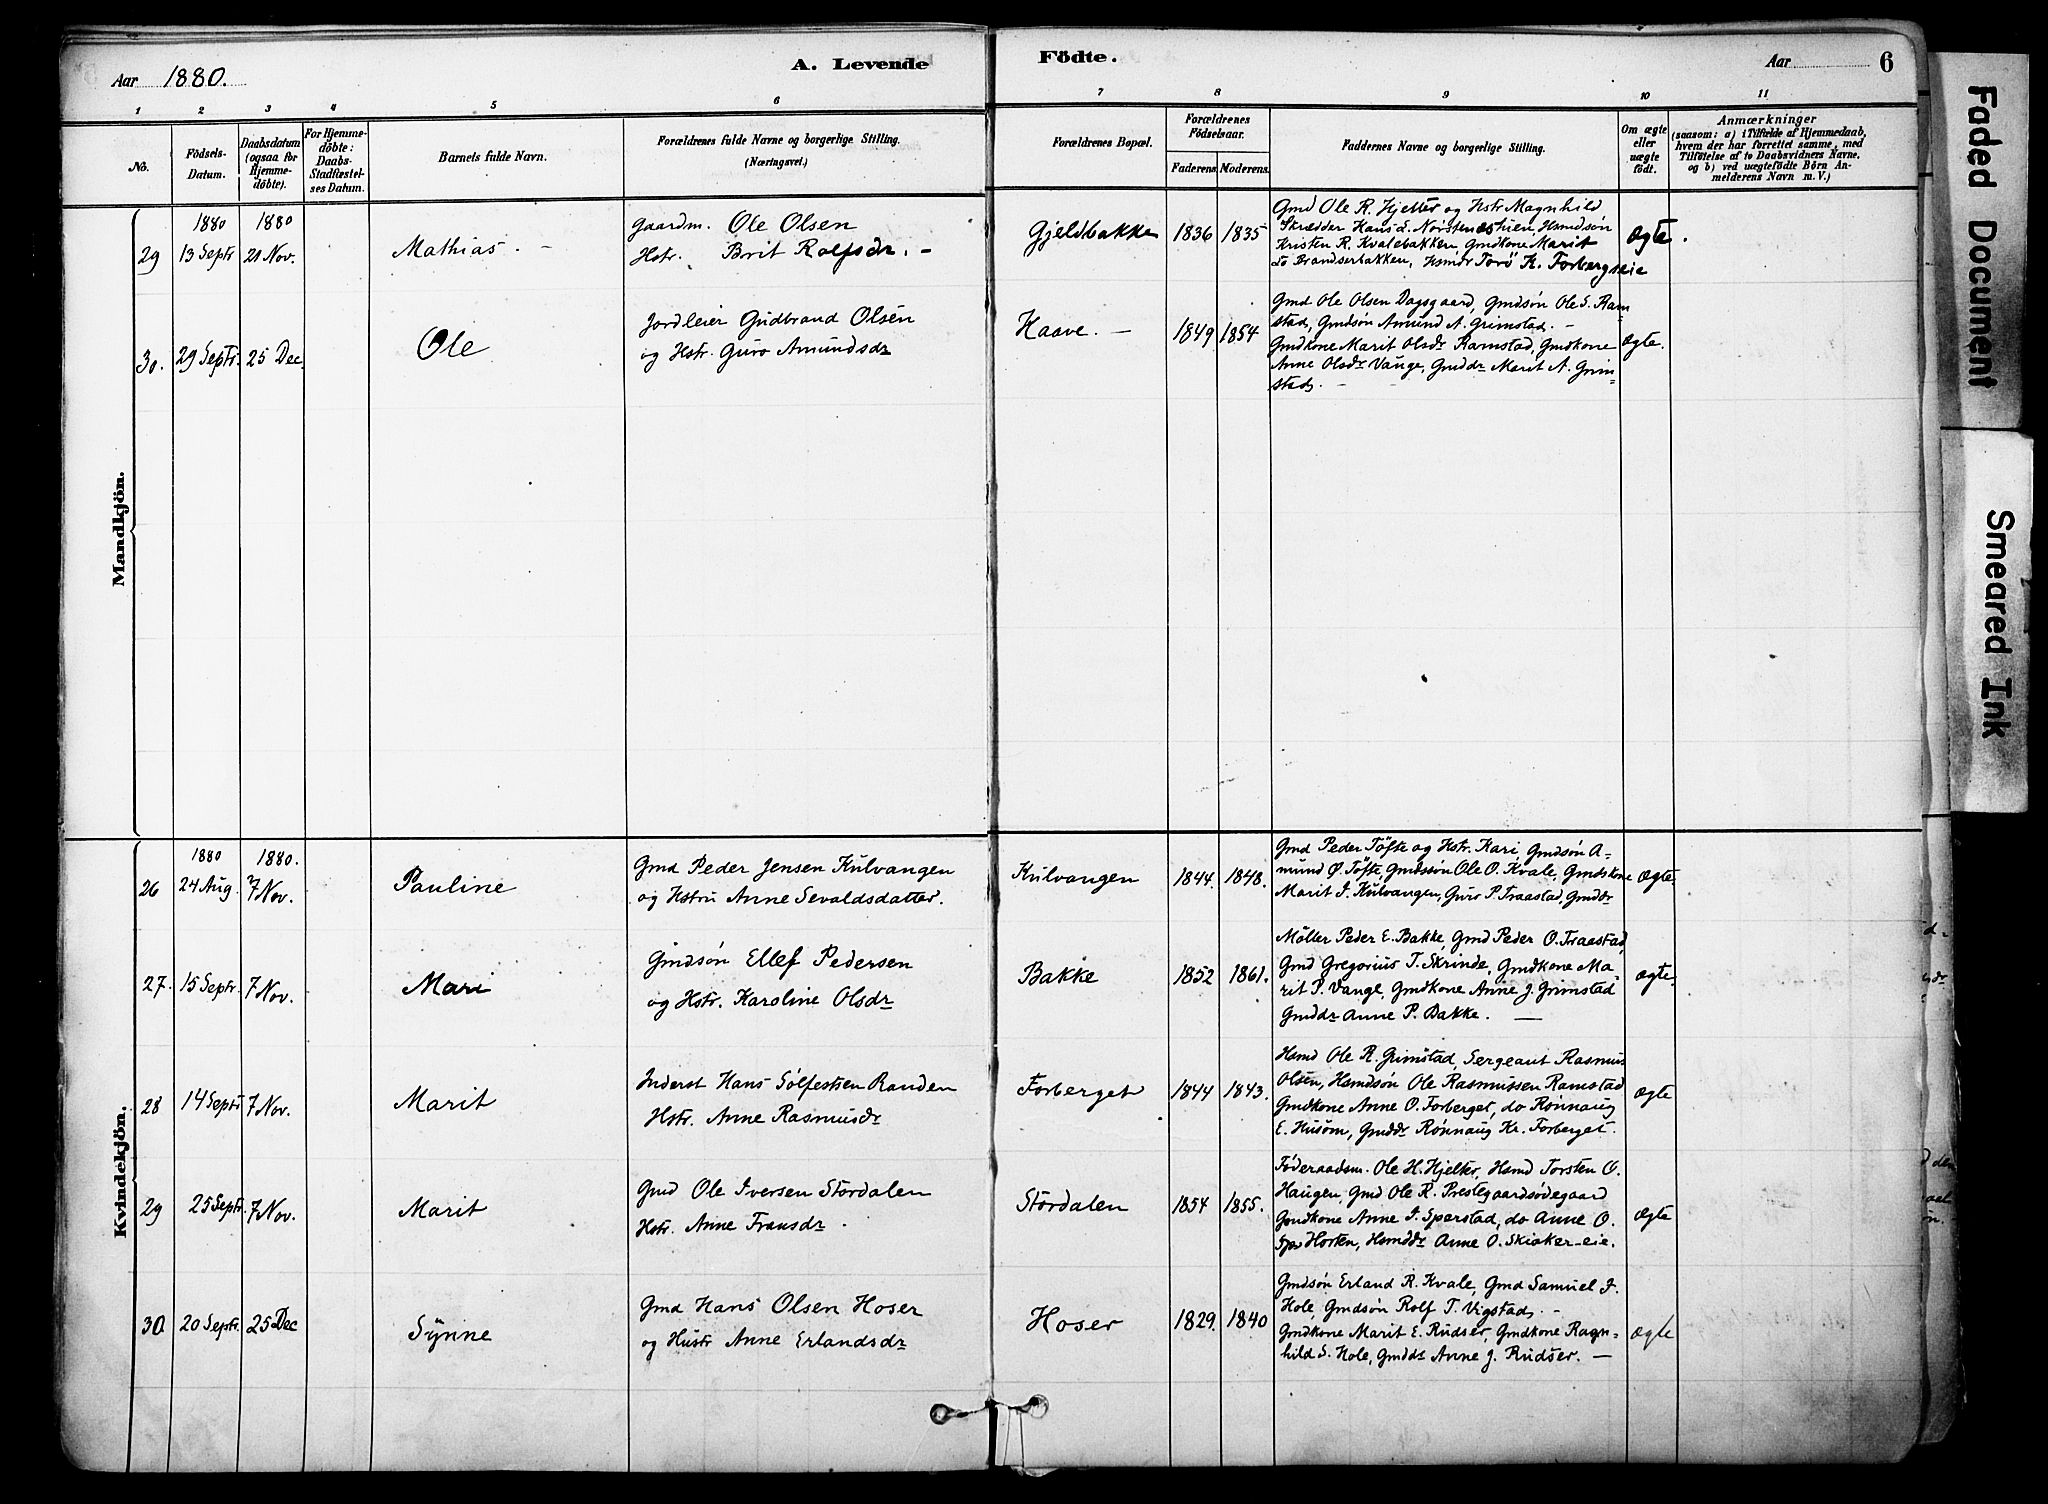 Aar 1880.
A. Levende
Födte.
Aar
6
1 2 3 4 5 6 7 8 9 10 11
No.
Födsels-Datum.
Daabsdatum (ogsaa for Hjemmedöbte).
For Hjemmedöbte: Daabs-Stadfæstelses Datum.
Barnets fulde Navn.
Forældrenes fulde Navne og borgerlige Stilling.
(Næringsvei.)
Forældrenes Bopæl.
Forældrenes Födselsaar.
Faderens. Moderens.
Faddernes Navne og borgerlige Stilling.
Om ægte eller uægte födt.
Anmærkninger
(saasom: a) i Tilfælde af Hjemmedaab,
hvem der har forrettet samme, med
Tilföielse af to Daabsvidners Navne,
og b) ved uægtefödte Börn Anmelderens Navn m. V.)
Mandkjön.
1880 1880
29 13 Septr 21 Nov.
Mathias. -
Gaardm. Ole Olsen
Hstr. Brit Rolfsdr. -
Gjeldbakke 1836 1835
Gmd Ole R. Hjelter og Hstr Magnhild
Skrædder Hans L. Nørstenæshien, Hsmdsön
Kristen R. Kvalebakken Gmdkone Marit
do Brandserbakken, Hsmdr Torö K. Forbergseie
Ægte.
30. 29 Septr. 25 Dec.
Ole
Jordleier Gudbrand Olsen
og Hstr. Guro Amundsdr
Kaave. - 1849 1854
Gmd Ole Olsen Dagsgaard, Gmdsön Ole S. Ram
stad, Gmdsön Amund A. Grimstad. -
Gmdkone Marit Olsdr Ramstad, Gmdkone
Anne Olsdr Vange, Gmddr Marit A. Grim-
stad. - -
Ægte.
Kvindekjön.
1880 1880.
26 24 Aug. 7 Nov.
Pauline
Gmd Peder Jensen Kulvangen
og Hstru Anne Sevaldsdatter.
Kulvangen 1844. 1848.
Gmd Peder Töfte og Hstr. Kari, Gmdsön A-
mund Ø. Töfte, Gmdssön Ole O. Kvale, Gmdskone
Marit J. Kulvangen, Guro P. Fraastad, Gmddr
Ægte.
27. 15 Septr. 7 Nov.
Mari
Gmdsön Ellef Pedersen
og Hstr. Karoline Olsdr
Bakke 1852 1861.
Möller Peder E. Bakke, Gmd Peder O. Fraastad,
Gmd Gregorius T. Skrinde, Gmdkone Ma-
rit P. Vange, Gmdkone Anne J. Grimstad
Gmddr Anne P. Bakke. -
Ægte.
28 14 Septr 7 Nov.
Marit
Inderst Hans Sölfestsen Randen
Hstr. Anne Rasmusdr
Forberget 1844 1843.
Hsmd Ole R. Grimstad, Sergeant Rasmus
Olsen, Hsmdsön Ole Rasmussen Ramstad
Gmdkone Anne O. Forberget, do Rönnaug
E. Husom, Gmddr Rönnaug Kr. Forberget.
Ægte
29 25 Septr. 7 Nov.
Marit
Gmd Ole Iversen Stordalen
Hstr. Anne Fransdr .
Stordalen 1854 1855.
Föderaadsm. Ole H. Hjelter, Hsmd Torsten O.
Haugen, Gmd Ole R. Prestegaardsödegaard
Gmdkone Anne I. Sperstad, do Anne O.
Horten, Hsmddr Anne O. Skiaker-eie.
Ægte
30. 20 Septr. 25 Dec
Synne
Gmd Hans Olsen Hoser
og Hustr Anne Erlandsdr
Hoser 1829. 1840
Gmdsön Erland R. Kvale, Gmd Samuel J.
Hole, Gmdsön Rolf T. Vigstad. -
Gmdkone Marit E. Rudser, Gmdkone Ragn-
hild S. Hole, Gmddr Anne J. Rudser. -
Ægte
Faded Document
Smeared Ink